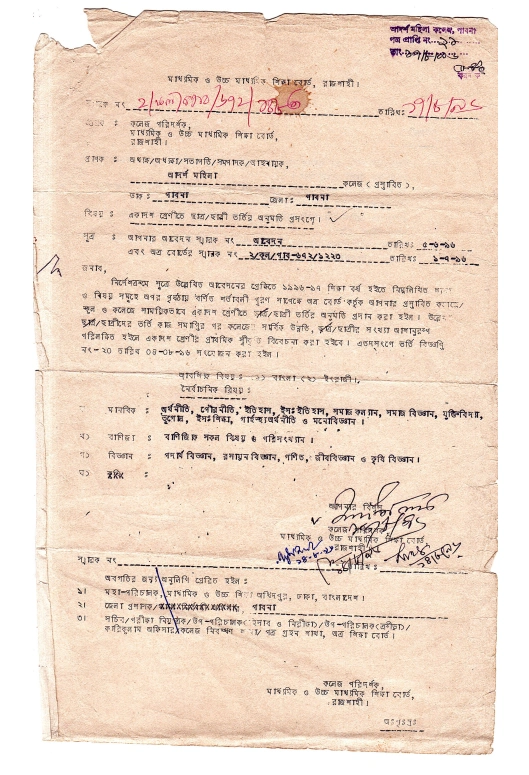 আদর্শ মহিলা কলেজ, পাবনা
পত্র প্রাপ্তি নং
তাং
মাধ্যমিক ও উচ্চ মাধ্যমিক শিক্ষা বোর্ড, রাজশাহী।
স্মারক নং তারিখঃ
প্রেরক : কলেজ পরিদর্শক,
মাধ্যমিক ও উচ্চ মাধ্যমিক শিক্ষা বোর্ড,
রাজশাহী।
প্রাপক : অধ্যক্ষ/অধ্যক্ষা/সভাপতি/সম্পাদক/আহবায়ক,
আদর্শ মহিলা কলেজ (প্রস্তাবিত),
ডাকঃ পাবনা জেলাঃ পাবনা
বিষয় : একাদশ শ্রেণীতে ছাত্র/ছাত্রী ভর্তির অনুমতি প্রসংগে।
সূত্র : আপনার আবেদন স্মারক নং আবেদন তারিখঃ ৫-৬-৯৬
এবং অত্র বোর্ডের স্মারক নং ২/কল/পাব-৬৭২/১২২০ তারিখঃ ১-৭-৯৬
জনাব,
নির্দেশক্রমে সূত্রে উল্লেখিত আবেদনের প্রেক্ষিতে ১৯৯৬-৯৭ শিক্ষা বর্ষ হইতে নিম্নলিখিত শাখা
ও বিষয় সমূহে অপর পৃষ্ঠায় বর্ণিত শর্তাবলী পূরণ সাপেক্ষে অত্র বোর্ড কর্তৃক আপনার প্রস্তাবিত কলেজে/
স্কুল ও কলেজে সাময়িকভাবে একাদশ শ্রেণীতে ছাত্র/ছাত্রী ভর্তির অনুমতি প্রদান করা হইল।
ছাত্র/ছাত্রীদের ভর্তি কাজ সমাপ্তির পর কলেজের সার্বিক উন্নতি, ছাত্র/ছাত্রীর সংখ্যা আশানুরূপ
পরিলক্ষিত হইলে একাদশ শ্রেণীর প্রাথমিক স্বীকৃতি বিবেচনা করা হইবে। এতদসংগে ভর্তি বিজ্ঞপ্তি
নং-২০ তারিখ ০৪-০৮-৯৬ সংযোজন করা হইল।
আবশ্যিক বিষয় : ১) বাংলা (২) ইংরাজী।
নৈর্বাচনিক বিষয়:
মানবিক : অর্থনীতি, পৌরনীতি, ইতিহাস, ইসঃ ইতিহাস, সমাজ কল্যান, সমাজ বিজ্ঞান, যুক্তিবিদ্যা,
ভূগোল, ইসঃ শিক্ষা, গার্হস্থ্য অর্থনীতি ও মনোবিজ্ঞান।
খ) বাণিজ্য : বাণিজ্যিক সকল বিষয় ও পরিসংখ্যান।
গ) বিজ্ঞান : পদার্থ বিজ্ঞান, রসায়ন বিজ্ঞান, গণিত, জীববিজ্ঞান ও কৃষি বিজ্ঞান।
ঘ) কৃষি : XXX
আপনার বিশ্বস্ত
কলেজ পরিদর্শক
মাধ্যমিক ও উচ্চ মাধ্যমিক শিক্ষা বোর্ড
রাজশাহী
স্মারক নং তারিখঃ
অবগতির জন্য অনুলিপি প্রেরিত হইল :
১। মহা-পরিচালক, মাধ্যমিক ও উচ্চ শিক্ষা অধিদপ্তর, ঢাকা, বাংলাদেশ।
২। জেলা প্রশাসক/XXXXXXXXXXXX, পাবনা
৩। সচিব/পরীক্ষা নিয়ন্ত্রক/উপ-পরিচালক(হিসাব ও নিরীক্ষা)/উপ-পরিচালক(ক্রীড়া)/
অত্র বোর্ড।
কলেজ পরিদর্শক,
মাধ্যমিক ও উচ্চ মাধ্যমিক শিক্ষা বোর্ড,
রাজশাহী।
অঃপৃঃদ্রঃ